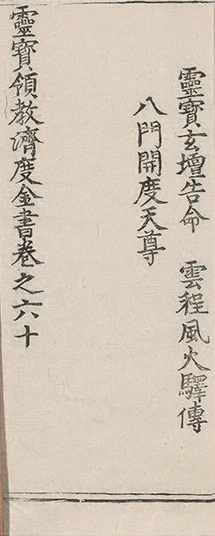 靈寶玄壇告命　雲程風火驛傳
八門開度天尊
靈寶領教濟度金書卷之六十